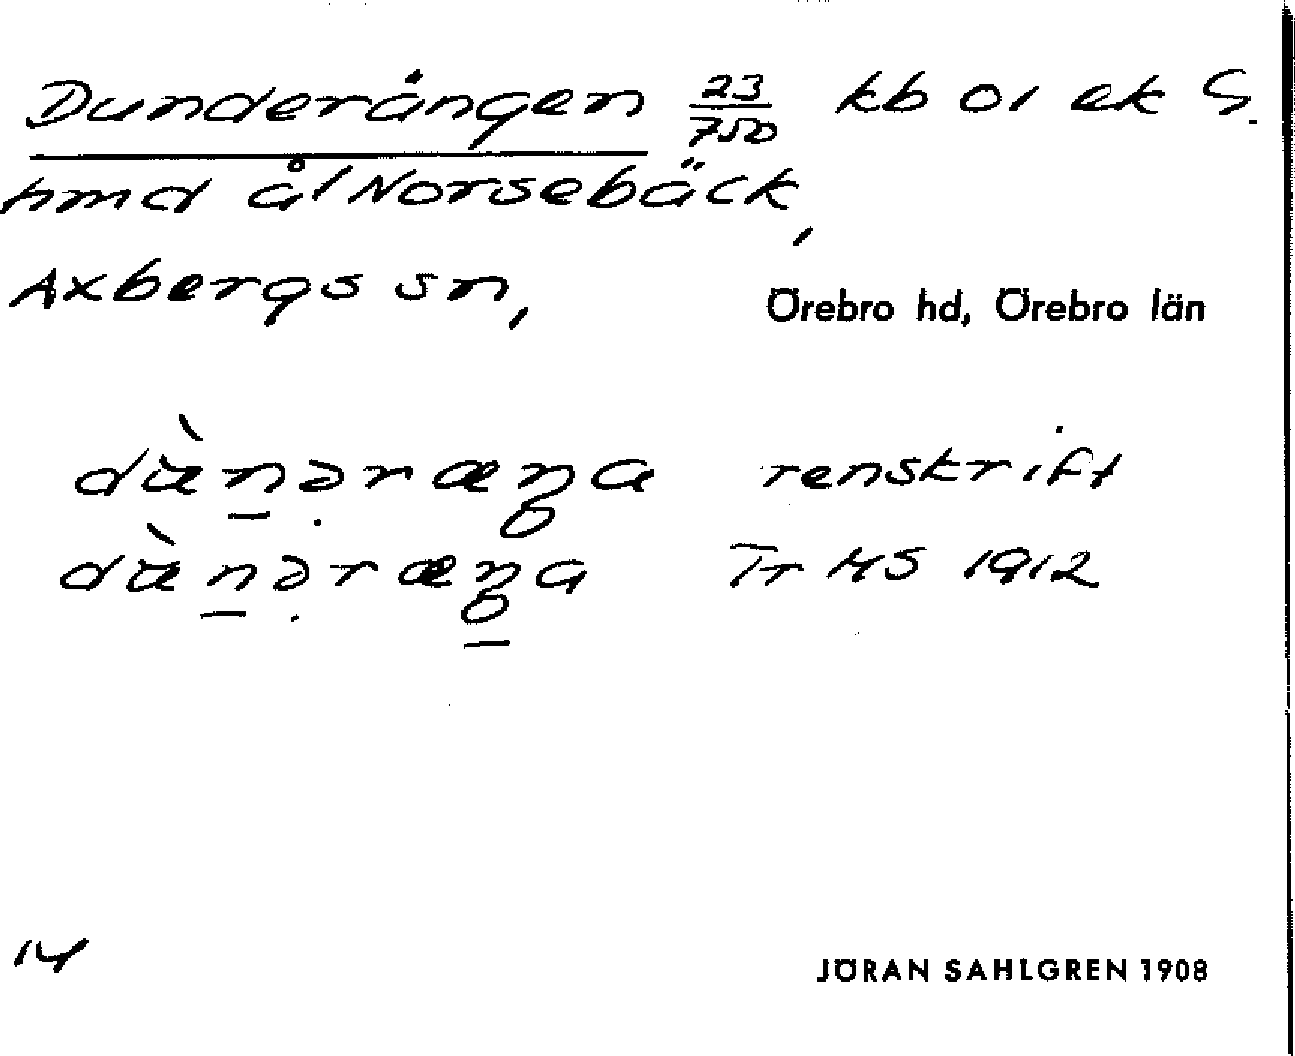 Dunderängen 23/750 kb 01 ek S.
hmd å/Norsebäck,
Axbergs sn, Örebro hd, Örebro län
dànəræŋa renskrift
dànəræŋa Tr HS 1912
14 JÖRAN SAHLGREN 1908